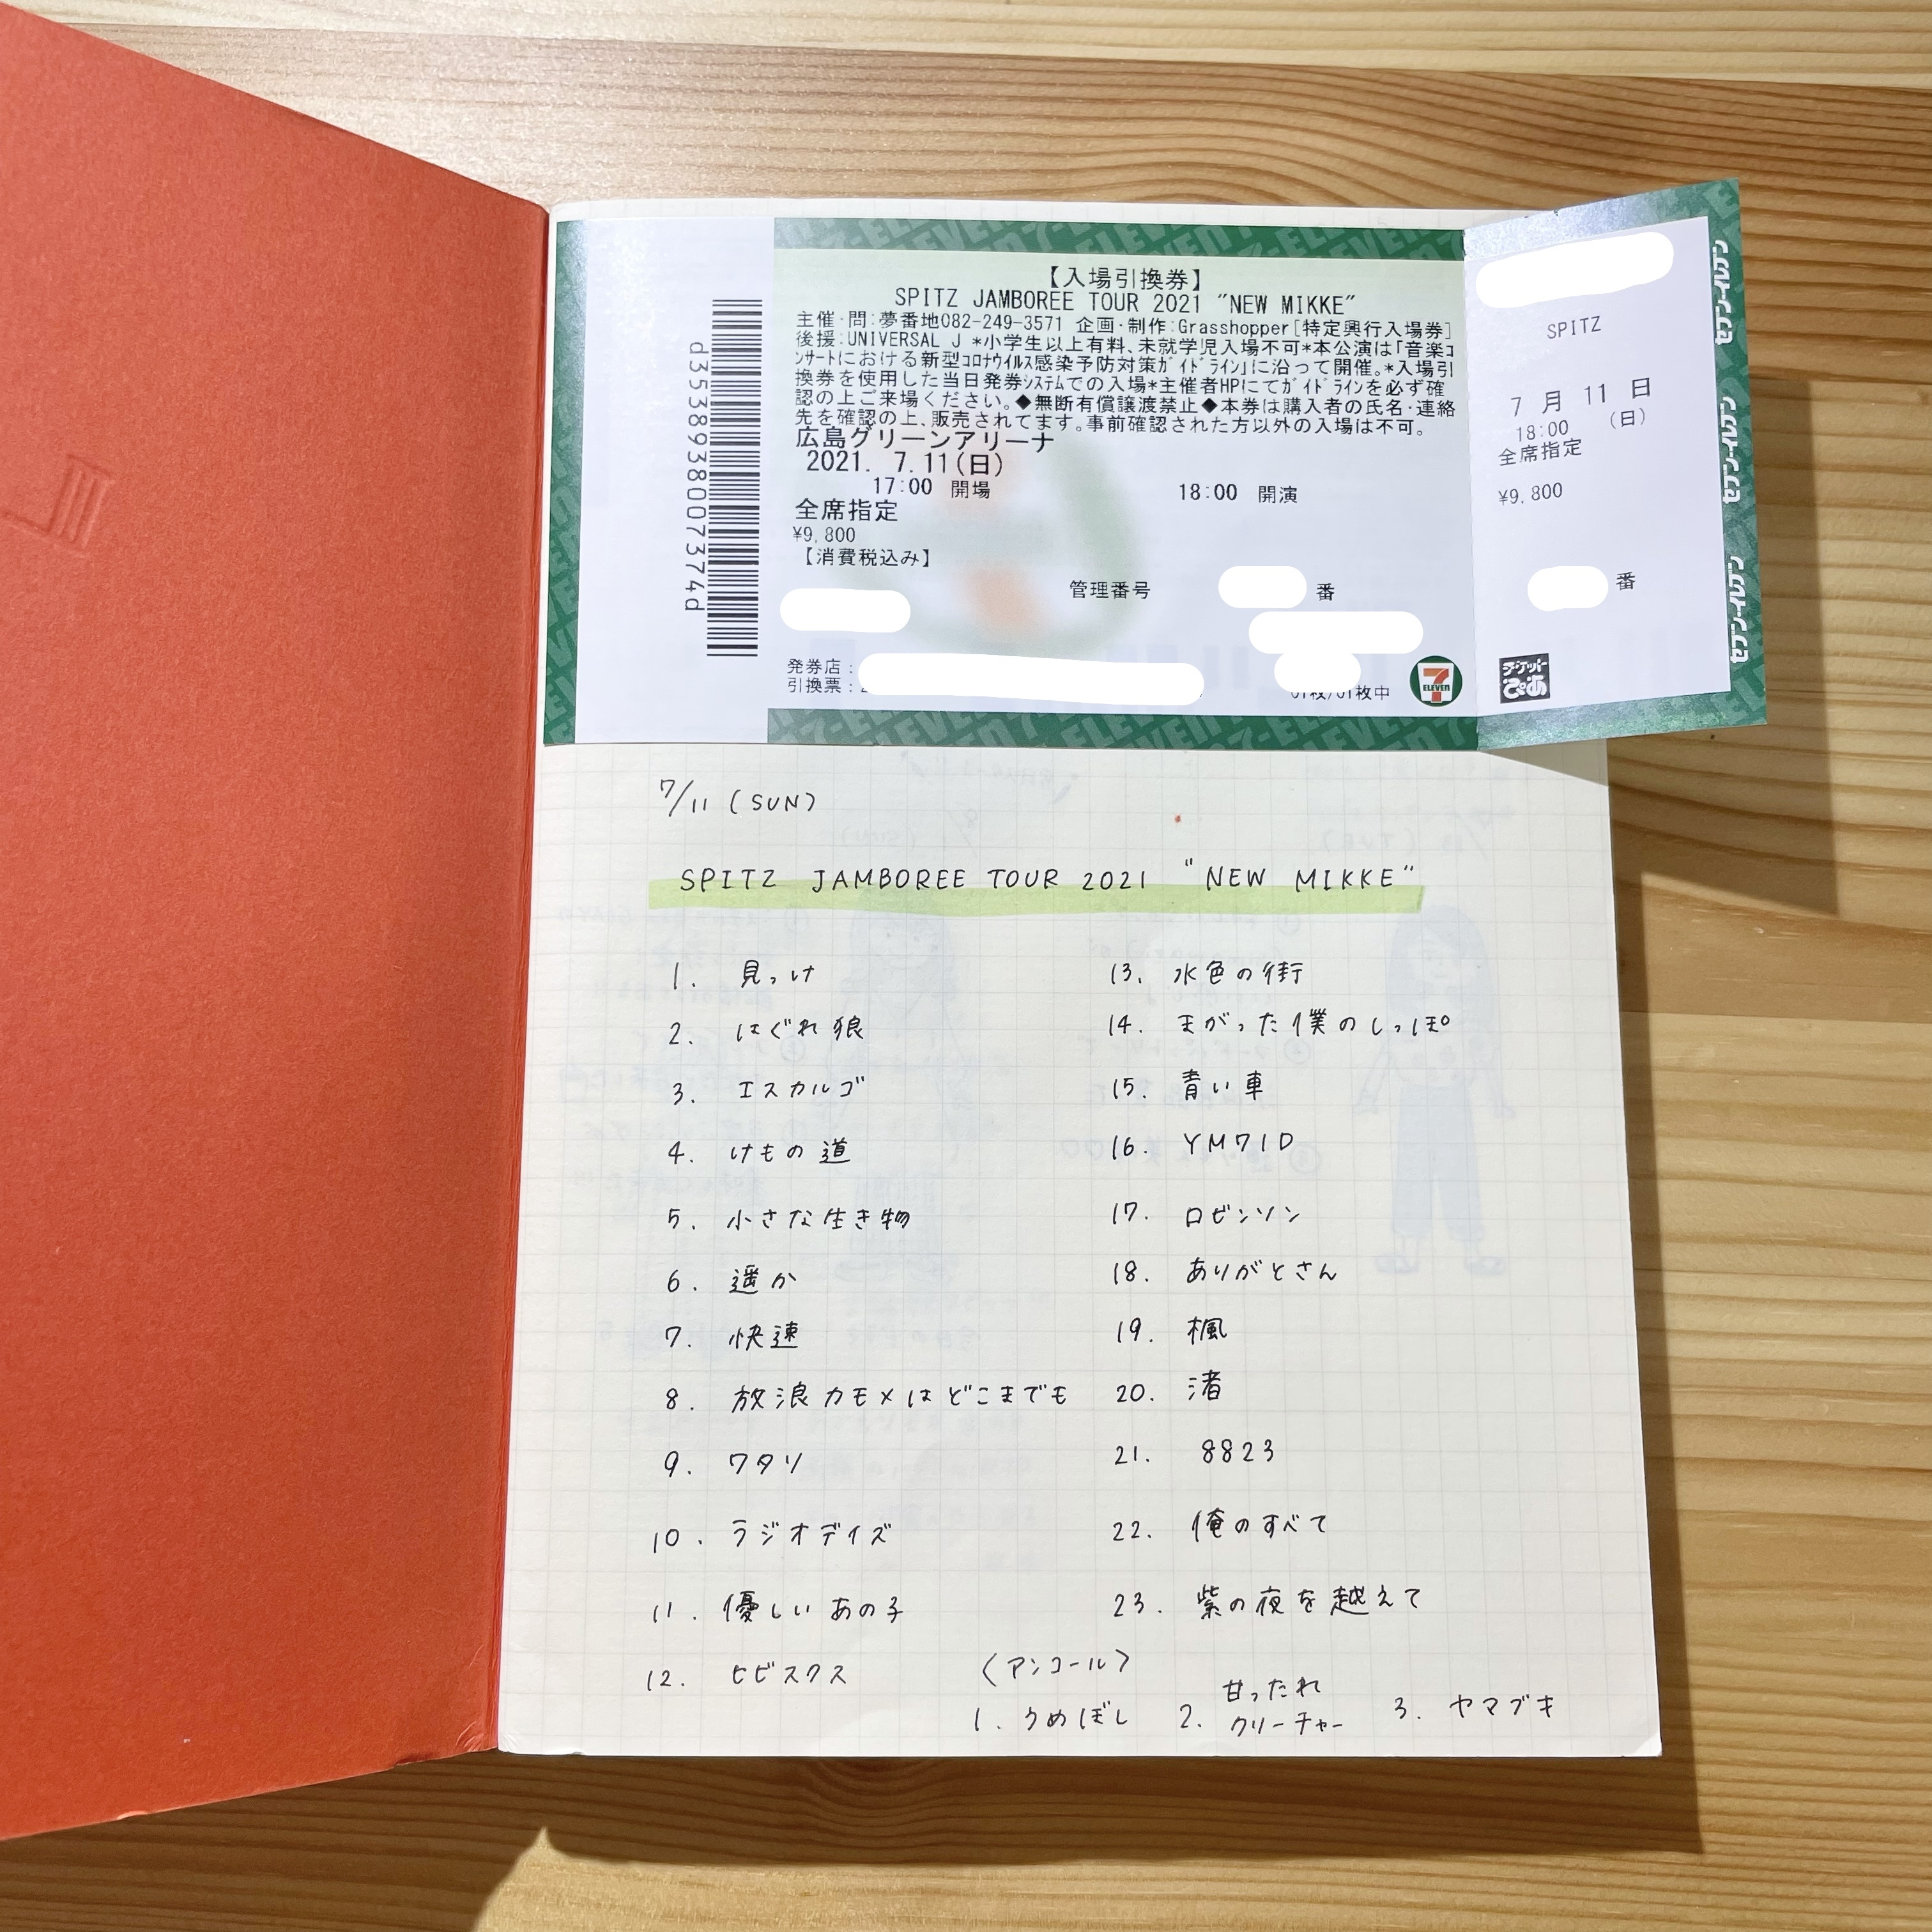 【入場引換券】
SPITZ JAMBOREE TOUR 2021 "NEW MIKKE"
主催・問:夢番地082-249-3571 企画・制作:Grasshopper[特定興行入場券]
後援:UNIVERSAL J *小学生以上有料、未就学児入場不可*本公演は「音楽コ
ンサートにおける新型コロナウイルス感染予防対策ガイドライン」に沿って開催。*入場引
換券を使用した当日発券システムでの入場*主催者HPにてガイドラインを必ず確
認の上ご来場ください。◆無断有償譲渡禁止◆本券は購入者の氏名・連絡
先を確認の上、販売されてます。事前確認された方以外の入場は不可。
広島グリーンアリーナ
2021. 7.11(日)
17:00 開場 18:00 開演
全席指定
¥9,800
【消費税込み】
管理番号 番
発券店:
引換票:
01枚/01枚中
7 ELEVEN
d35389380073 74d
SPITZ
7月11日
18:00 (日)
全席指定
¥9,800
番
チケットぴあ
セブン-イレブン
セブン-イレブン
セブン-イレブン
7/11 (SUN)
SPITZ JAMBOREE TOUR 2021 "NEW MIKKE"
1. 見っけ
2. はぐれ狼
3. エスカルゴ
4. けもの道
5. 小さな生き物
6. 遥か
7. 快速
8. 放浪カモメはどこまでも
9. ワタリ
10. ラジオデイズ
11. 優しいあの子
12. ヒビスクス
13. 水色の街
14. まがった僕のしっぽ
15. 青い車
16. YM71D
17. ロビンソン
18. ありがとさん
19. 楓
20. 渚
21. 8823
22. 俺のすべて
23. 紫の夜を越えて
〈アンコール〉
1. うめぼし 2. 甘ったれクリーチャー 3. ヤマブキ